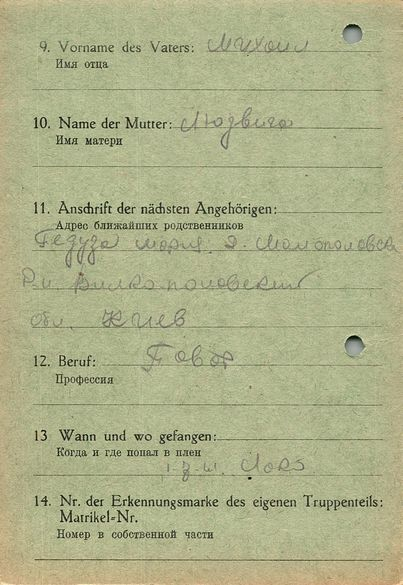 9. Vorname des Vaters: Михоил
Имя отца
10. Name der Mutter: Людвига
Имя матери
11. Anschrift der nächsten Angehörigen:
Адрес ближайших родственников
Р.н.
обл. Киев
12. Beruf:
Профессия
13 Wann und wo gefangen:
Когда и где попал в плен
14. Nr. der Erkennungsmarke des eigenen Truppenteils:
Matrikel=Nr.
Номер в собственной части